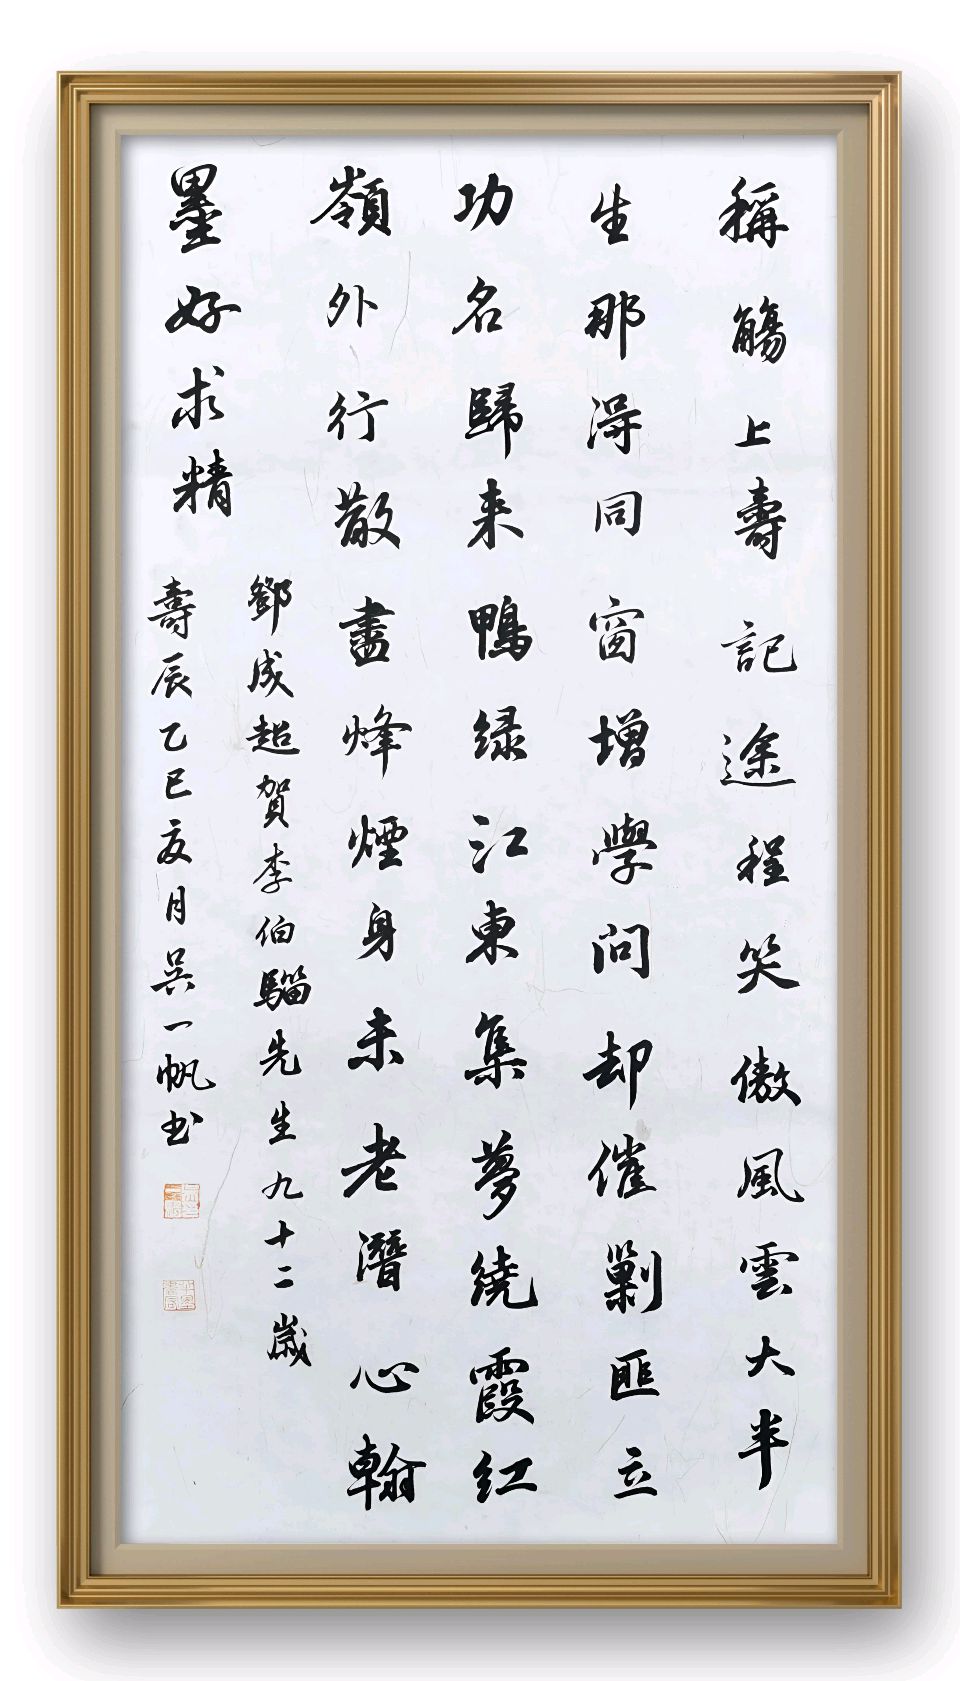 稱觴上壽記途程笑傲風雲大半
生那得同窗增學問却催剿匪立
功名歸来鴨绿江東集夢繞霞红
嶺外行散盡烽煙身未老潛心翰
墨好求精
鄧成超賀李伯騮先生九十二歲
壽辰乙巳亥月吴一帆书